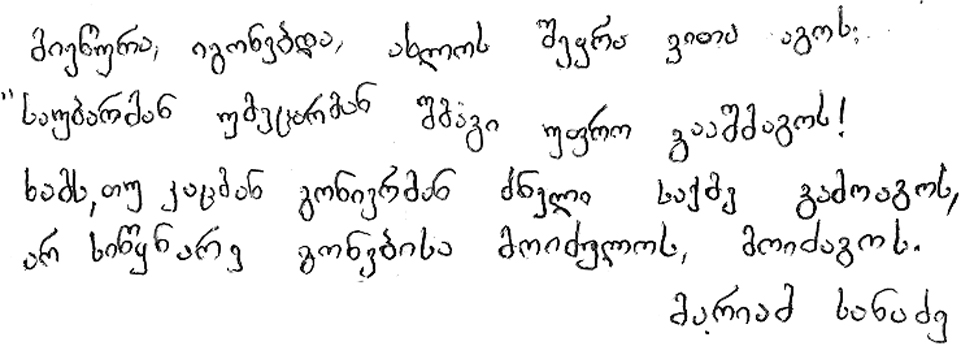 მიეწურა, იგონებდა, ახლოს შეყრა ვითა აგოს:
"საუბარმან უმეცარმან შმაგი უფრო გააშმაგოს!
ხამს, თუ კაცმან გონიერმან ძნელი საქმე გამოაგოს,
არ სიწყნარე გონებისა მოიძულოს, მოიძაგოს.
მარიამ სანაძე